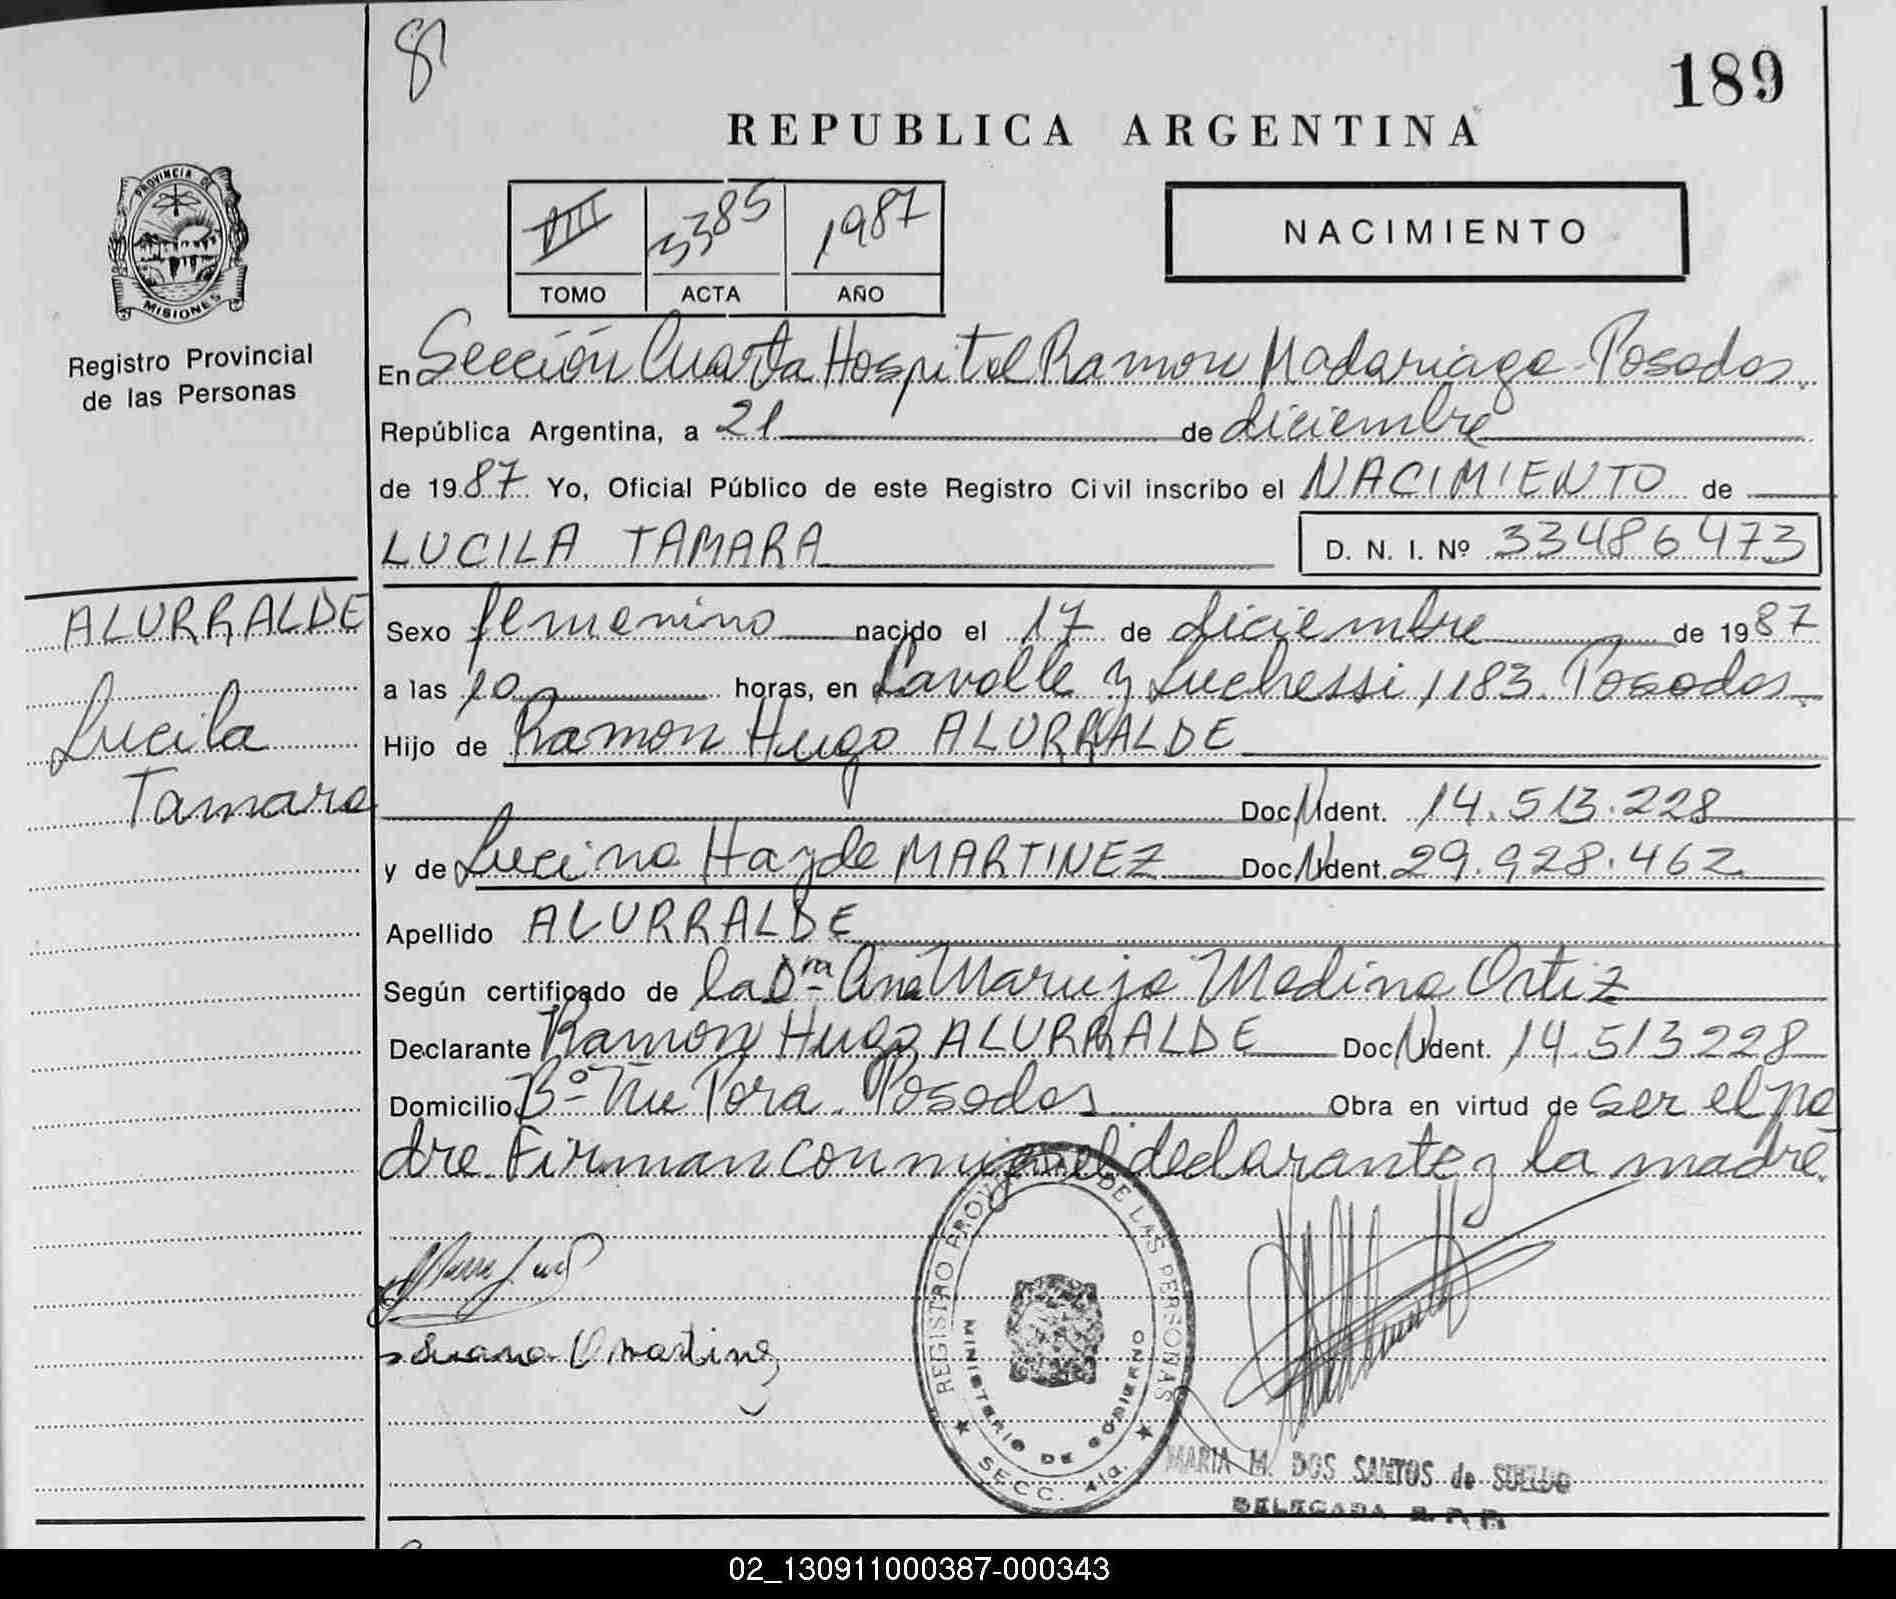 87
189
REPUBLICA ARGENTINA
PROVINCIA DE
MISIONES
Registro Provincial
de las Personas
VIII 3385 1987
TOMO ACTA AÑO
NACIMIENTO
En Sección Cuarta Hospital Ramon Madariaga - Posadas.
República Argentina, a 21 de diciembre
de 1987 Yo, Oficial Público de este Registro Civil inscribo el NACIMIENTO de
LUCILA TAMARA D. N. I. Nº 33486473
ALURRALDE
Lucila
Tamara
Sexo femenino nacido el 17 de diciembre de 1987
a las 10 horas, en Lavalle y Luchessi 1183. Posadas.
Hijo de Ramon Hugo ALURRALDE
Doc. Ident. 14.513.228
y de Lucina Hayde MARTINEZ Doc. Ident. 29.928.462
Apellido ALURRALDE
Según certificado de la Dra. Ana Maruja Medina Ortiz
Declarante Ramon Hugo ALURRALDE Doc. Ident. 14.513.228
Domicilio Bº Ñu Pora. Posadas Obra en virtud de ser el pa
dre. Firman conmigo el declarante y la madre.
REGISTRO PROVINCIAL DE LAS PERSONAS
MINISTERIO DE GOBIERNO
SECC. 4ta.
MARIA M. DOS SANTOS de SUELDO
DELEGADA R. P. P.
02_130911000387-000343